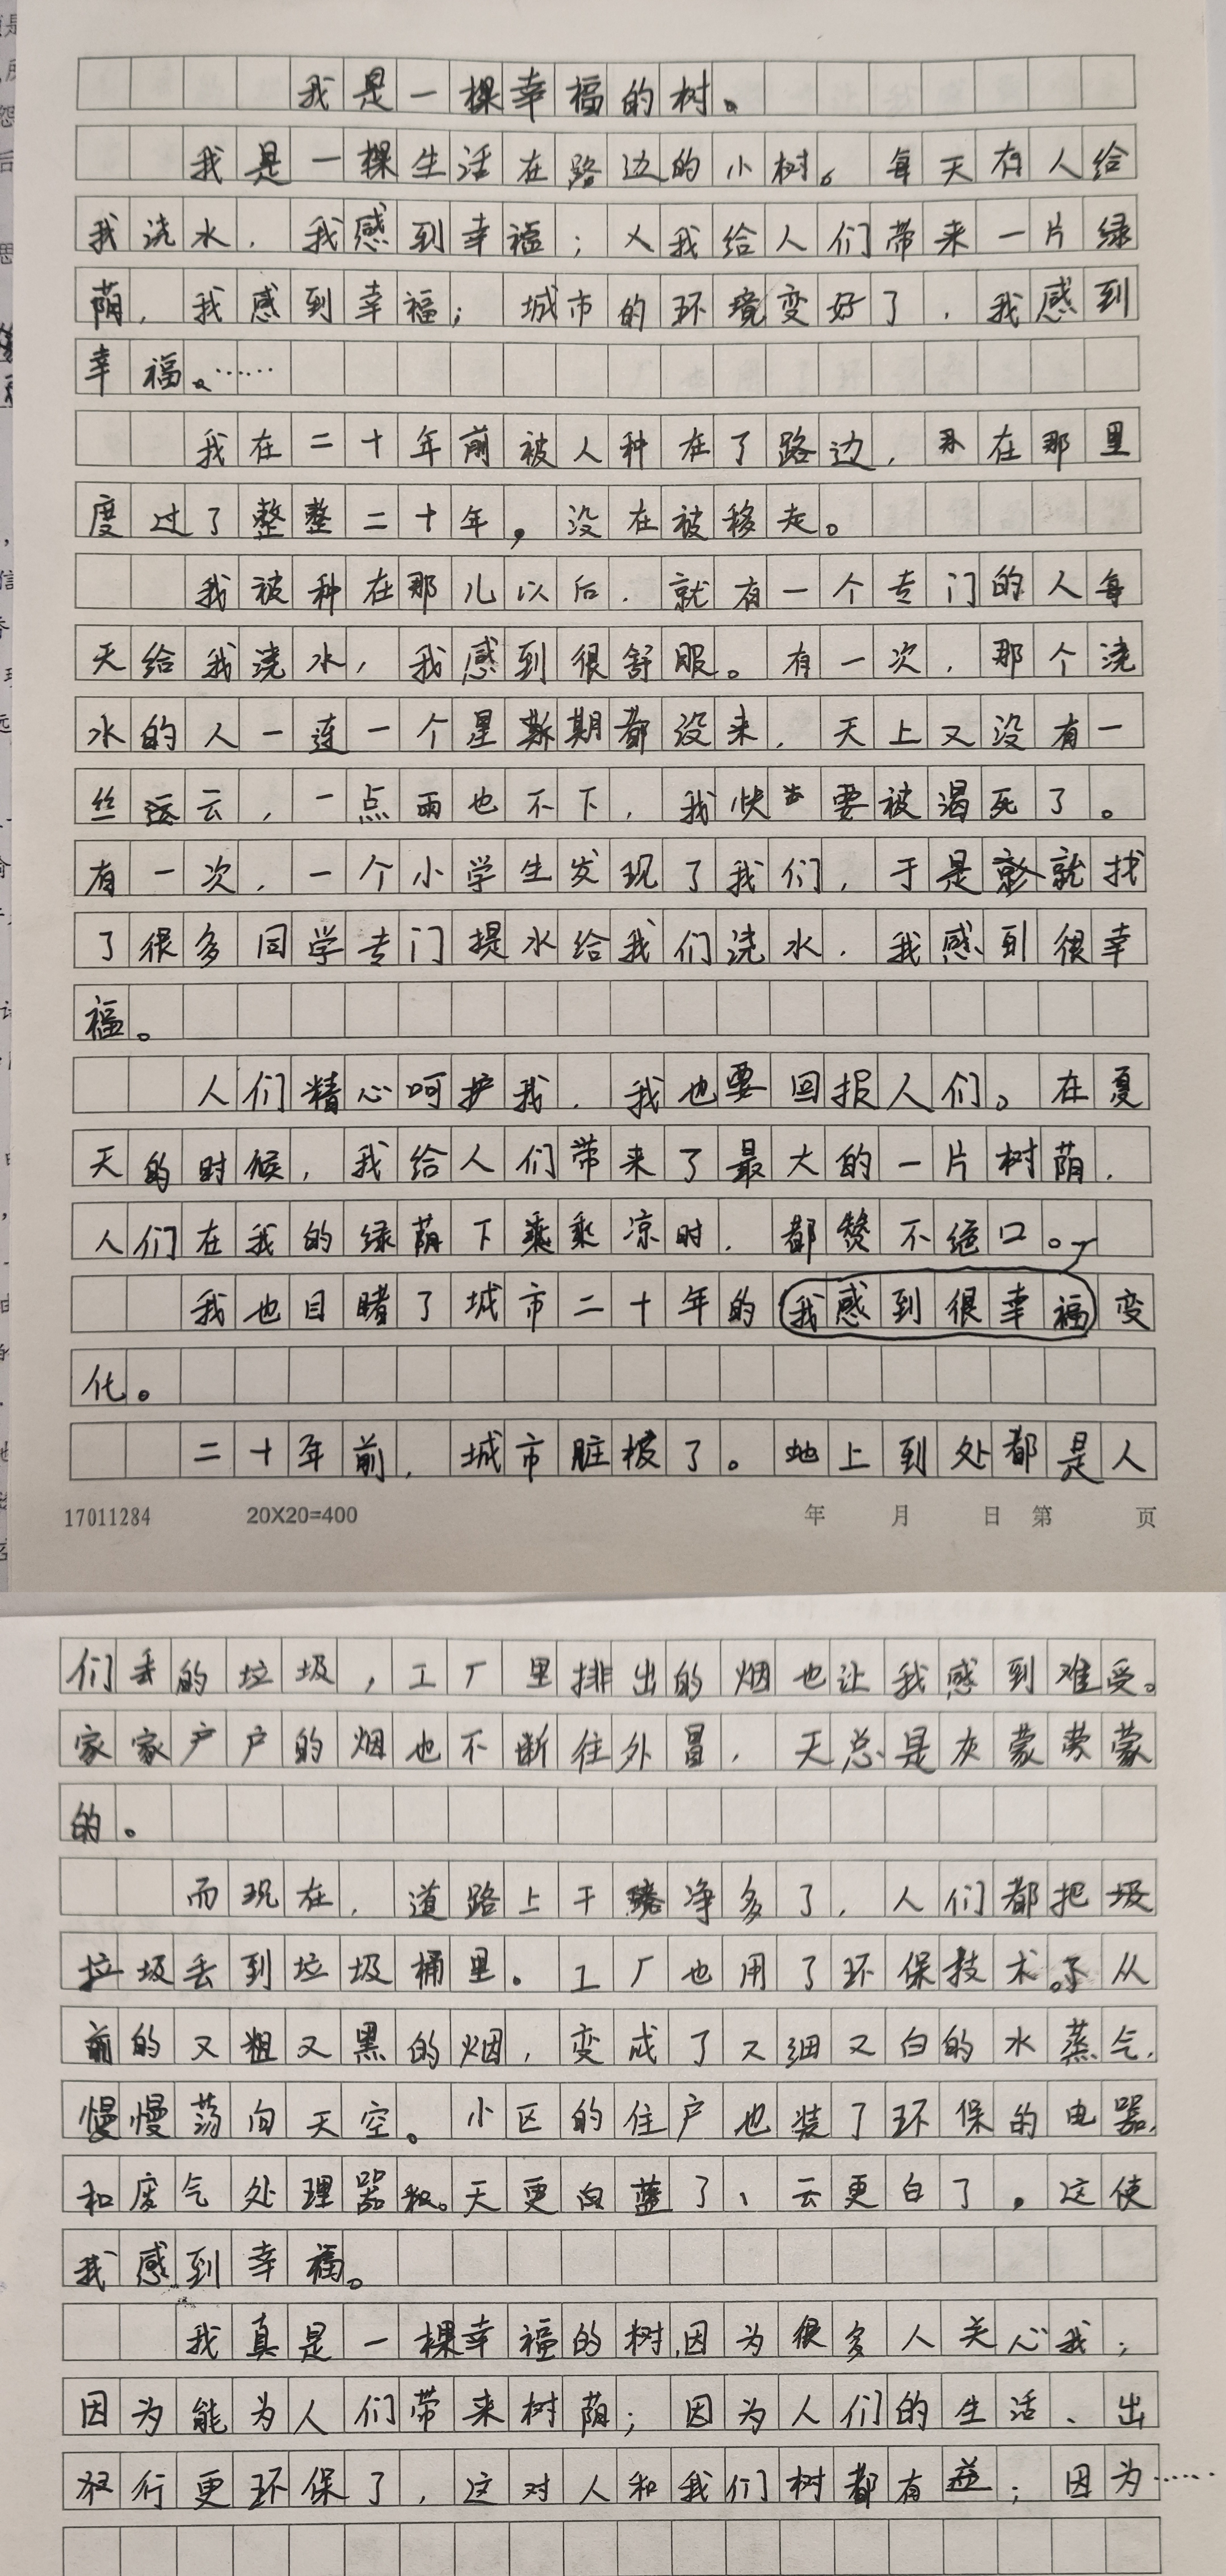 我是一棵幸福的树。
我是一棵生活在路边的小树。每天有人给
我浇水，我感到幸福；我给人们带来一片绿
荫，我感到幸福；城市的环境变好了，我感到
幸福。……
我在二十年前被人种在了路边，在那里
度过了整整二十年，没在被移走。
我被种在那儿以后，就有一个专门的人每
天给我浇水，我感到很舒服。有一次，那个浇
水的人一连一个星期都没来，天上又没有一
丝云，一点雨也不下，我快要被渴死了。
有一次，一个小学生发现了我们，于是就找
了很多同学专门提水给我们浇水，我感到很幸
福。
人们精心呵护我，我也要回报人们。在夏
天的时候，我给人们带来了最大的一片树荫，
人们在我的绿荫下乘凉时，都赞不绝口。
我也目睹了城市二十年的我感到很幸福变
化。
二十年前，城市脏极了。地上到处都是人
17011284 20X20=400 年 月 日 第 页
们丢的垃圾，工厂里排出的烟也让我感到难受。
家家户户的烟也不断往外冒，天总是灰蒙蒙
的。
而现在，道路上干净多了，人们都把
垃圾丢到垃圾桶里。工厂也用了环保技术。从
前的又粗又黑的烟，变成了又细又白的水蒸气，
慢慢荡向天空。小区的住户也装了环保的电器，
和废气处理器。天更蓝了、云更白了，这使
我感到幸福。
我真是一棵幸福的树，因为很多人关心我；
因为能为人们带来树荫；因为人们的生活、出
行更环保了，这对人和我们树都有益；因为……